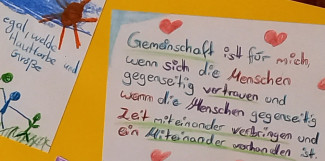 egal, welche
Hautfarbe und
Größe
Gemeinschaft ist für mich,
wenn sich die Menschen
gegenseitig vertrauen und
wenn die Menschen gegenseitig
Zeit miteinander verbringen und
ein Miteinander vorhanden ist.